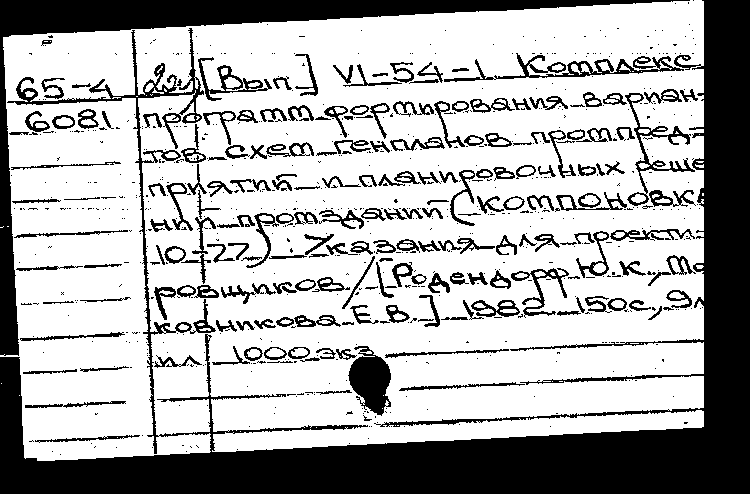 65-4 [Вып.] VI-54-1 Комплекс
6081 программ формирования вариан-
тов схем генпланов промпред-
приятий и планировочных реше
ний промзданий (КОМПОНОВКА
10-77) : Указания для проекти-
ровщиков / [Родендорф Ю.К., Ма
ковникова Е.В.] 1982 150с., 9л
ил 1000 экз